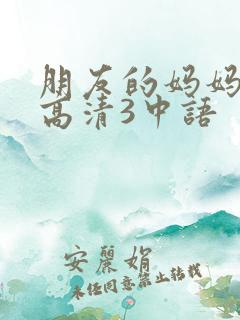 朋友的妈妈
高清3中語
安麗娟
未经同意禁止转载